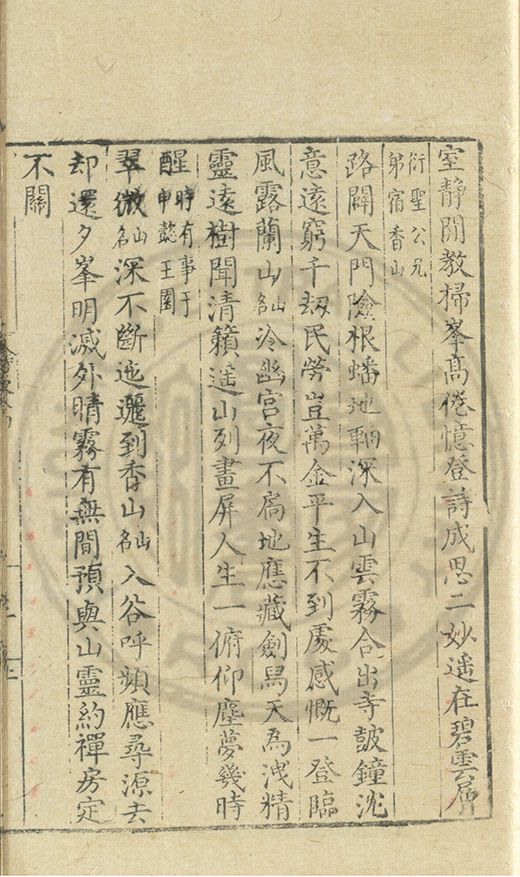 室靜閒教掃峯高倦憶登詩成思二妙遥在碧雲層
衍聖公兄
弟宿香山
路闢天門險根蟠地軸深入山雲霧合出寺皷鐘沈
意遠窮千刼民勞豈萬金平生不到處感慨一登臨
風露蘭山名山冷幽宫夜不扄地應藏劍舄天為洩精
靈遠樹聞清籟遥山列畫屏人生一俯仰塵夢幾時
醒時有事于
申懿王園
翠微名山深不斷迤邐到香山名山入谷呼頻應尋源去
却還夕峯明滅外晴霧有無間預與山靈約禪房定
不關